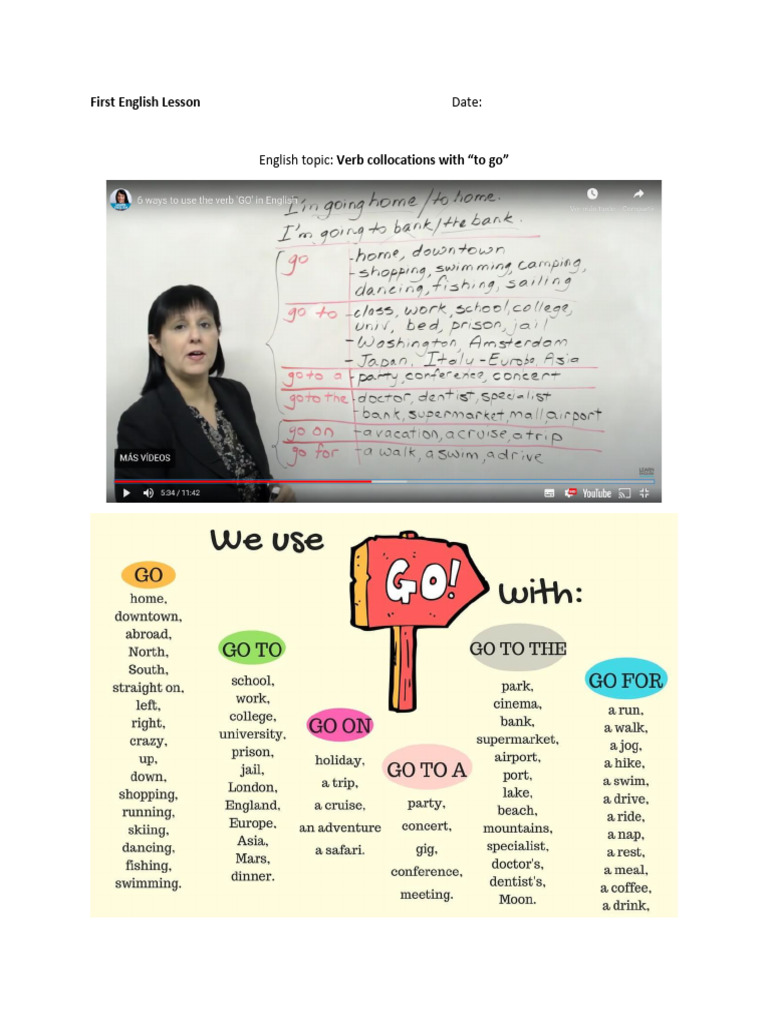 First English Lesson Date:
English topic: Verb collocations with “to go”
6 ways to use the verb 'GO' in English
I'm going home / to home.
I'm going to bank / the bank.
go - home, downtown
- shopping, swimming, camping,
dancing, fishing, sailing
go to - class, work, school, college,
univ, bed, prison, jail
- Washington, Amsterdam
- Japan, Italy - Europe, Asia
go to a - party, conference, concert
go to the - doctor, dentist, specialist
- bank, supermarket, mall, airport
go on - a vacation, a cruise, a trip
go for - a walk, a swim, a drive
MÁS VÍDEOS
5:34 / 11:42
YouTube
We use
GO!
with:
GO
home,
downtown,
abroad,
North,
South,
straight on,
left,
right,
crazy,
up,
down,
shopping,
running,
skiing,
dancing,
fishing,
swimming.
GO TO
school,
work,
college,
university.
prison,
jail,
London,
England,
Europe,
Asia,
Mars,
dinner.
GO ON
holiday,
a trip,
a cruise,
an adventure
a safari.
GO TO A
party,
concert,
gig,
conference,
meeting.
GO TO THE
park,
cinema,
bank,
supermarket,
airport,
port,
lake,
beach,
mountains,
specialist,
doctor's,
dentist's,
Moon.
GO FOR
a run,
a walk,
a jog,
a hike,
a swim,
a drive,
a ride,
a nap,
a rest,
a meal,
a coffee,
a drink,